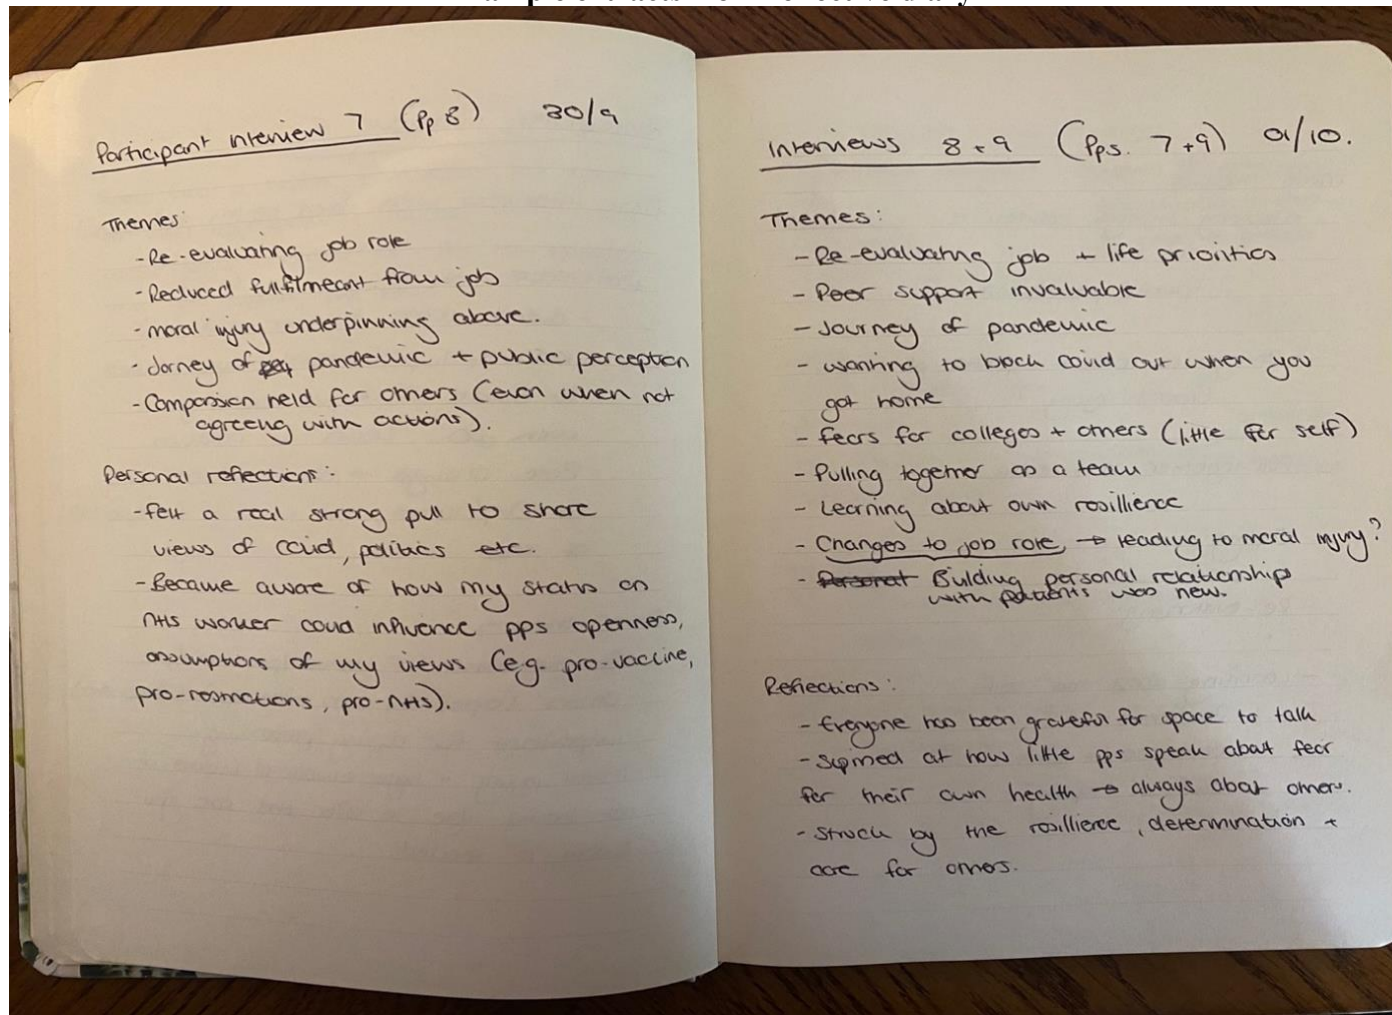 Participant interview 7 (Pp 8) 30/9
Themes:
- Re-evaluating job role
- Reduced fulfilmeant from job
- moral injury underpinning above.
- Jorney of pandemic + public perception
- Compassion held for others (even when not
agreeing with actions).
Personal reflections:
- felt a real strong pull to share
views of covid, politics etc.
- Became aware of how my status as
NHS worker could influence pps openness,
assumptions of my views (eg. pro-vaccine,
pro-restrictions, pro-NHS).
Interviews 8 + 9 (Pps. 7+9) 01/10.
Themes:
- Re-evaluating job + life priorities
- Peer support invaluable
- Journey of pandemic
- wanting to block covid out when you
got home
- fears for colleges + others (little for self)
- Pulling together as a team
- Learning about own resillience
- Changes to job role, → leading to moral injury?
- Personal Building personal relationships
with patients was new.
Reflections:
- Everyone has been grateful for space to talk
- Suprised at how little pps speak about fear
for their own health → always about others.
- Struck by the resillience, determination +
care for others.